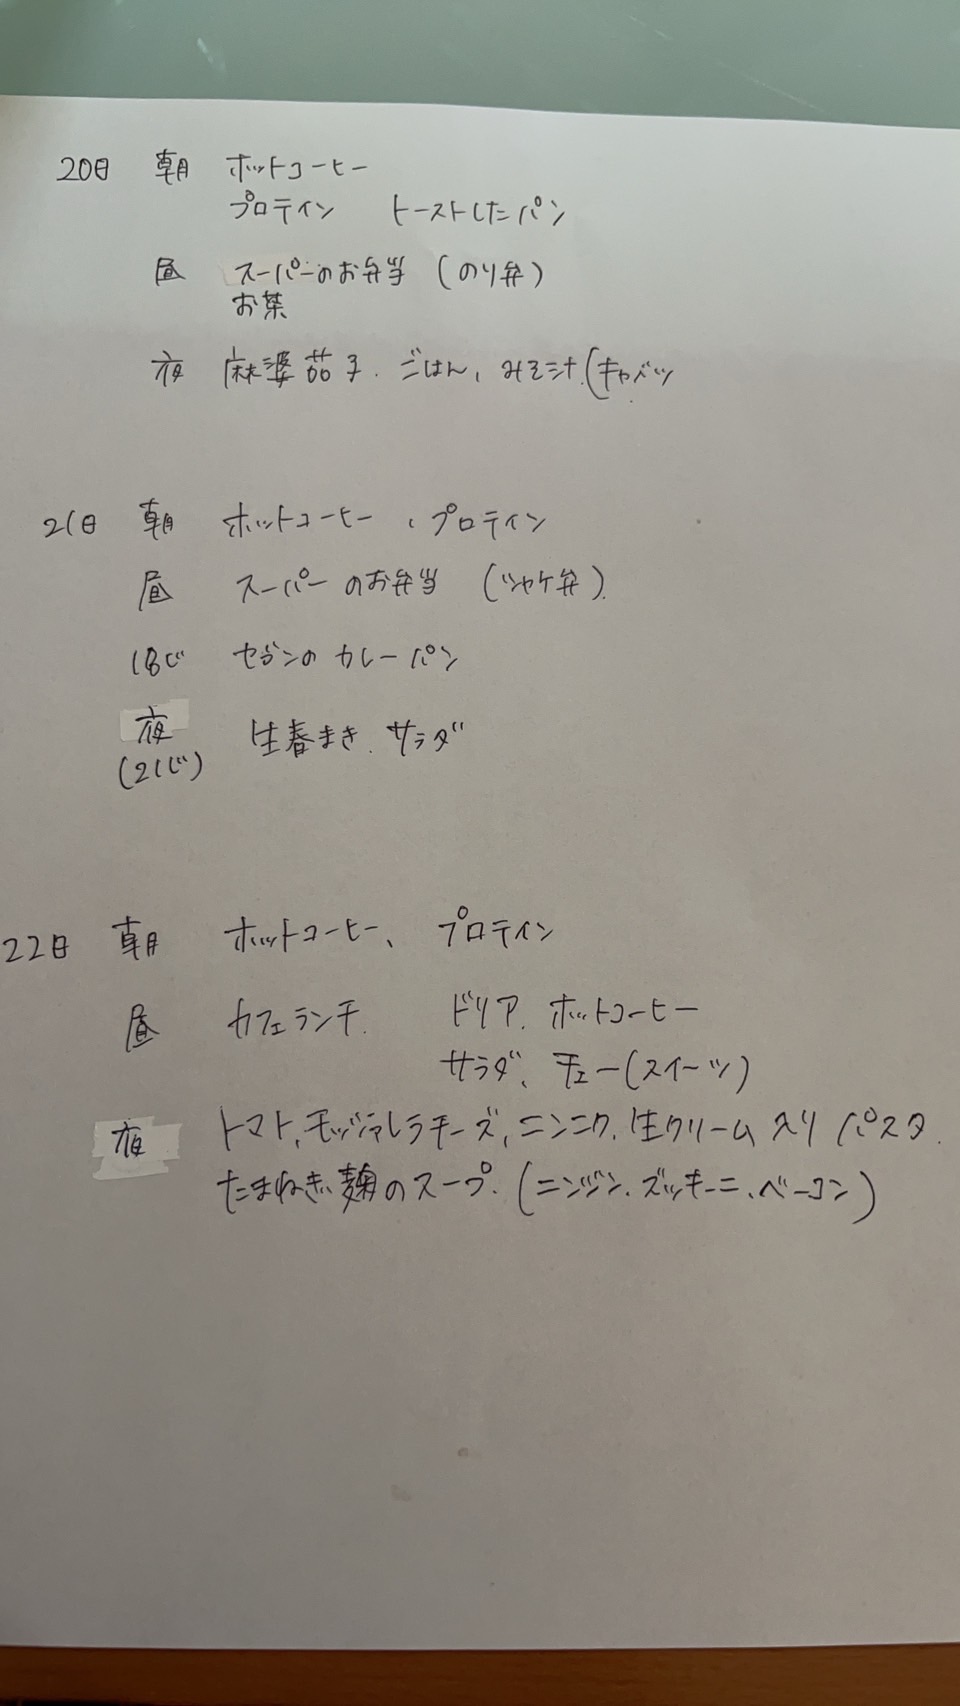 20日 朝 ホットコーヒー
プロテイン トーストしたパン
昼 スーパーのお弁当 (のり弁)
お茶
夜 麻婆茄子、ごはん、みそ汁(キャベツ
21日 朝 ホットコーヒー、プロテイン
昼 スーパーのお弁当 (シャケ弁)
18じ セブンのカレーパン
夜 生春まき、サラダ
(21じ)
22日 朝 ホットコーヒー、プロテイン
昼 カフェランチ ドリア、ホットコーヒー
サラダ、チェー(スイーツ)
夜 トマト、モッツァレラチーズ、ニンニク、生クリーム入りパスタ
たまねぎ麹のスープ、(ニンジン、ズッキーニ、ベーコン)